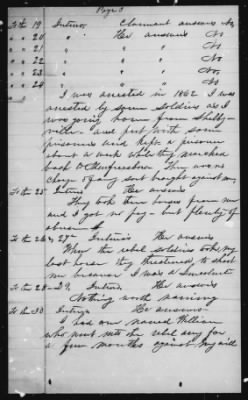 Page 3
To the 19 Interior Claimant answers No
" " 20 " Her answers No
" " 21 " " No
" " 22 " " No
" " 23 " " No
" " 24 " " No
I was arrested in 1862 I was
arrested by some soldiers as I
was going home from Shelby-
ville and put with some
prisoners and kept a prisoner
about a week while they marched
back to Murfreesboro There was no
charge of any sort brought against me
To the 25 Her answers
They took three horses from me
and I got no pay - but plenty of
abuse
To the 26 & 27 Her answers
When the rebel soldiers took my
last horse they threatened to shoot
me because I was a
To the 28 - 29 Her answers
Nothing worth naming
To the 30 Her answers
I had one named William
who went into the rebel army for
a few months against my will